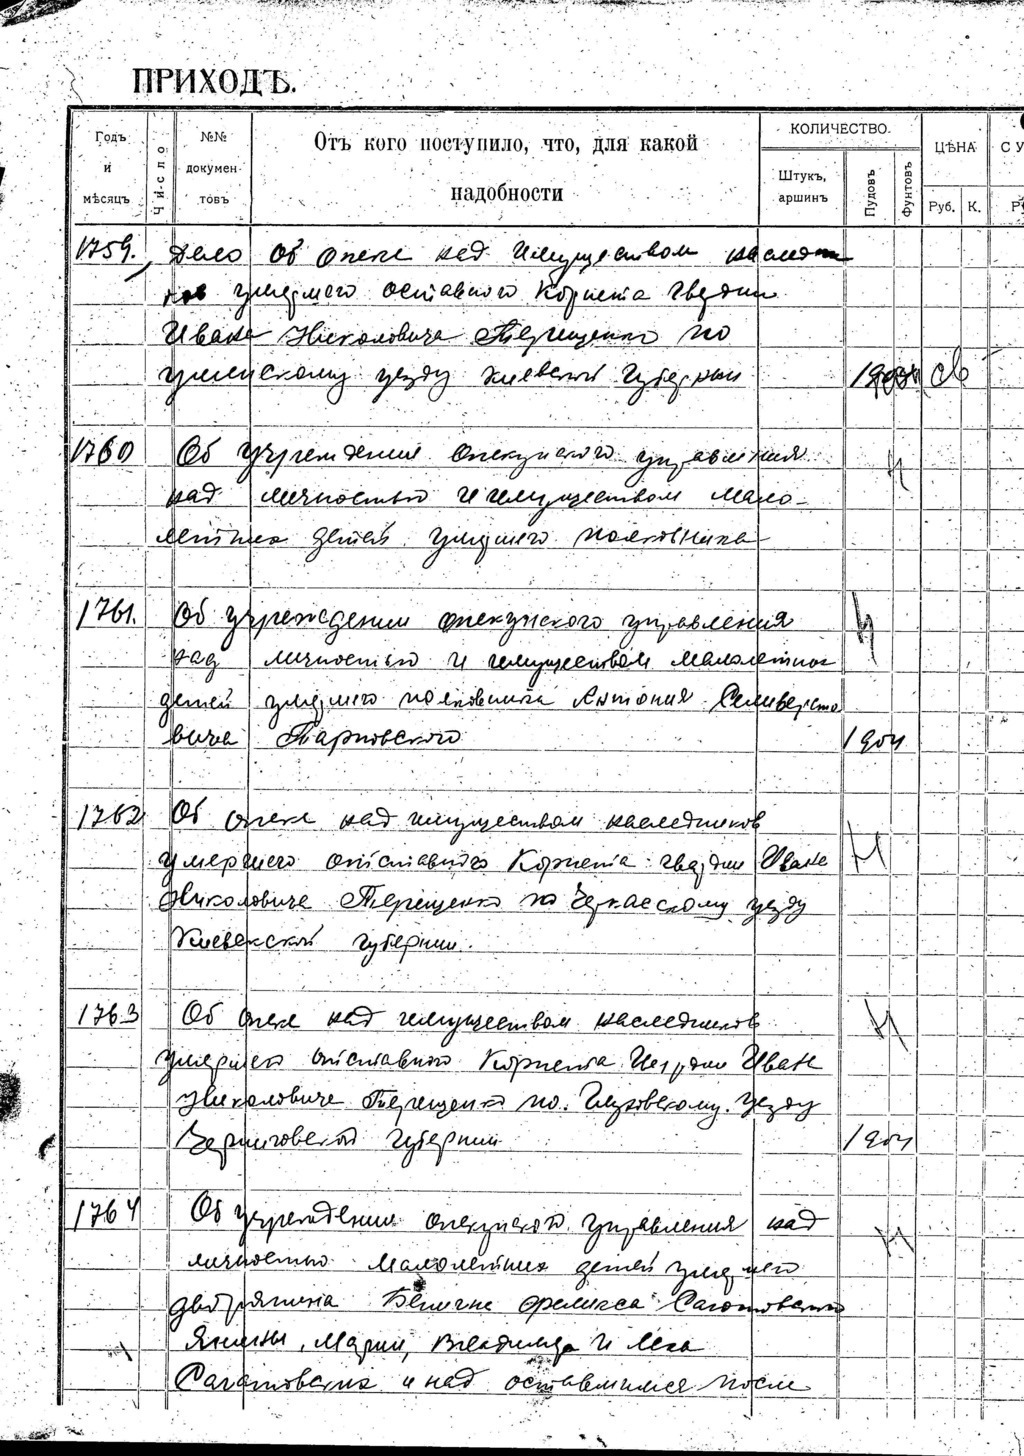 ПРИХОДЪ.
Годъ и мѣсяцъ
Число
№№ документовъ
Отъ кого поступило, что, для какой надобности
КОЛИЧЕСТВО.
Штукъ, аршинъ
Пудовъ
Фунтовъ
ЦѢНА
Руб.
К.
СУ
1759. Дело Об опеке над имуществом наследни
ков умершего отставного Корнета гвардии
Ивана Николовича Терещенко по
уманскому уезду Киевской Губернии
1760 Об учреждении опекунского управления
над личностью и имуществом мало-
летних детей умершего полковника
1761. Об учреждении опекунского управления
над личностью и имуществом малолетних
детей умершего полковника Антония Селиверсто
вича Тарновского 1904
1762 Об опеке над имуществом наследников
умершего отставного Корнета гвардии Ивана Н
Николовича Терещенко по Черкасскому уезду
Киевской губернии.
1763 Об опеке над имуществом наследников Н
умершего отставного Корнета Гвардии Ивана
Николовича Терещенко по Глуховскому уезду
Черниговской губернии 1904
1764 Об учреждении опекунского управления над
личностью малолетних детей умершего Н
дворянина Феликса Сагатовского
Янины, Марии, Владимира и Льва
Сагатовских и над оставшимся после